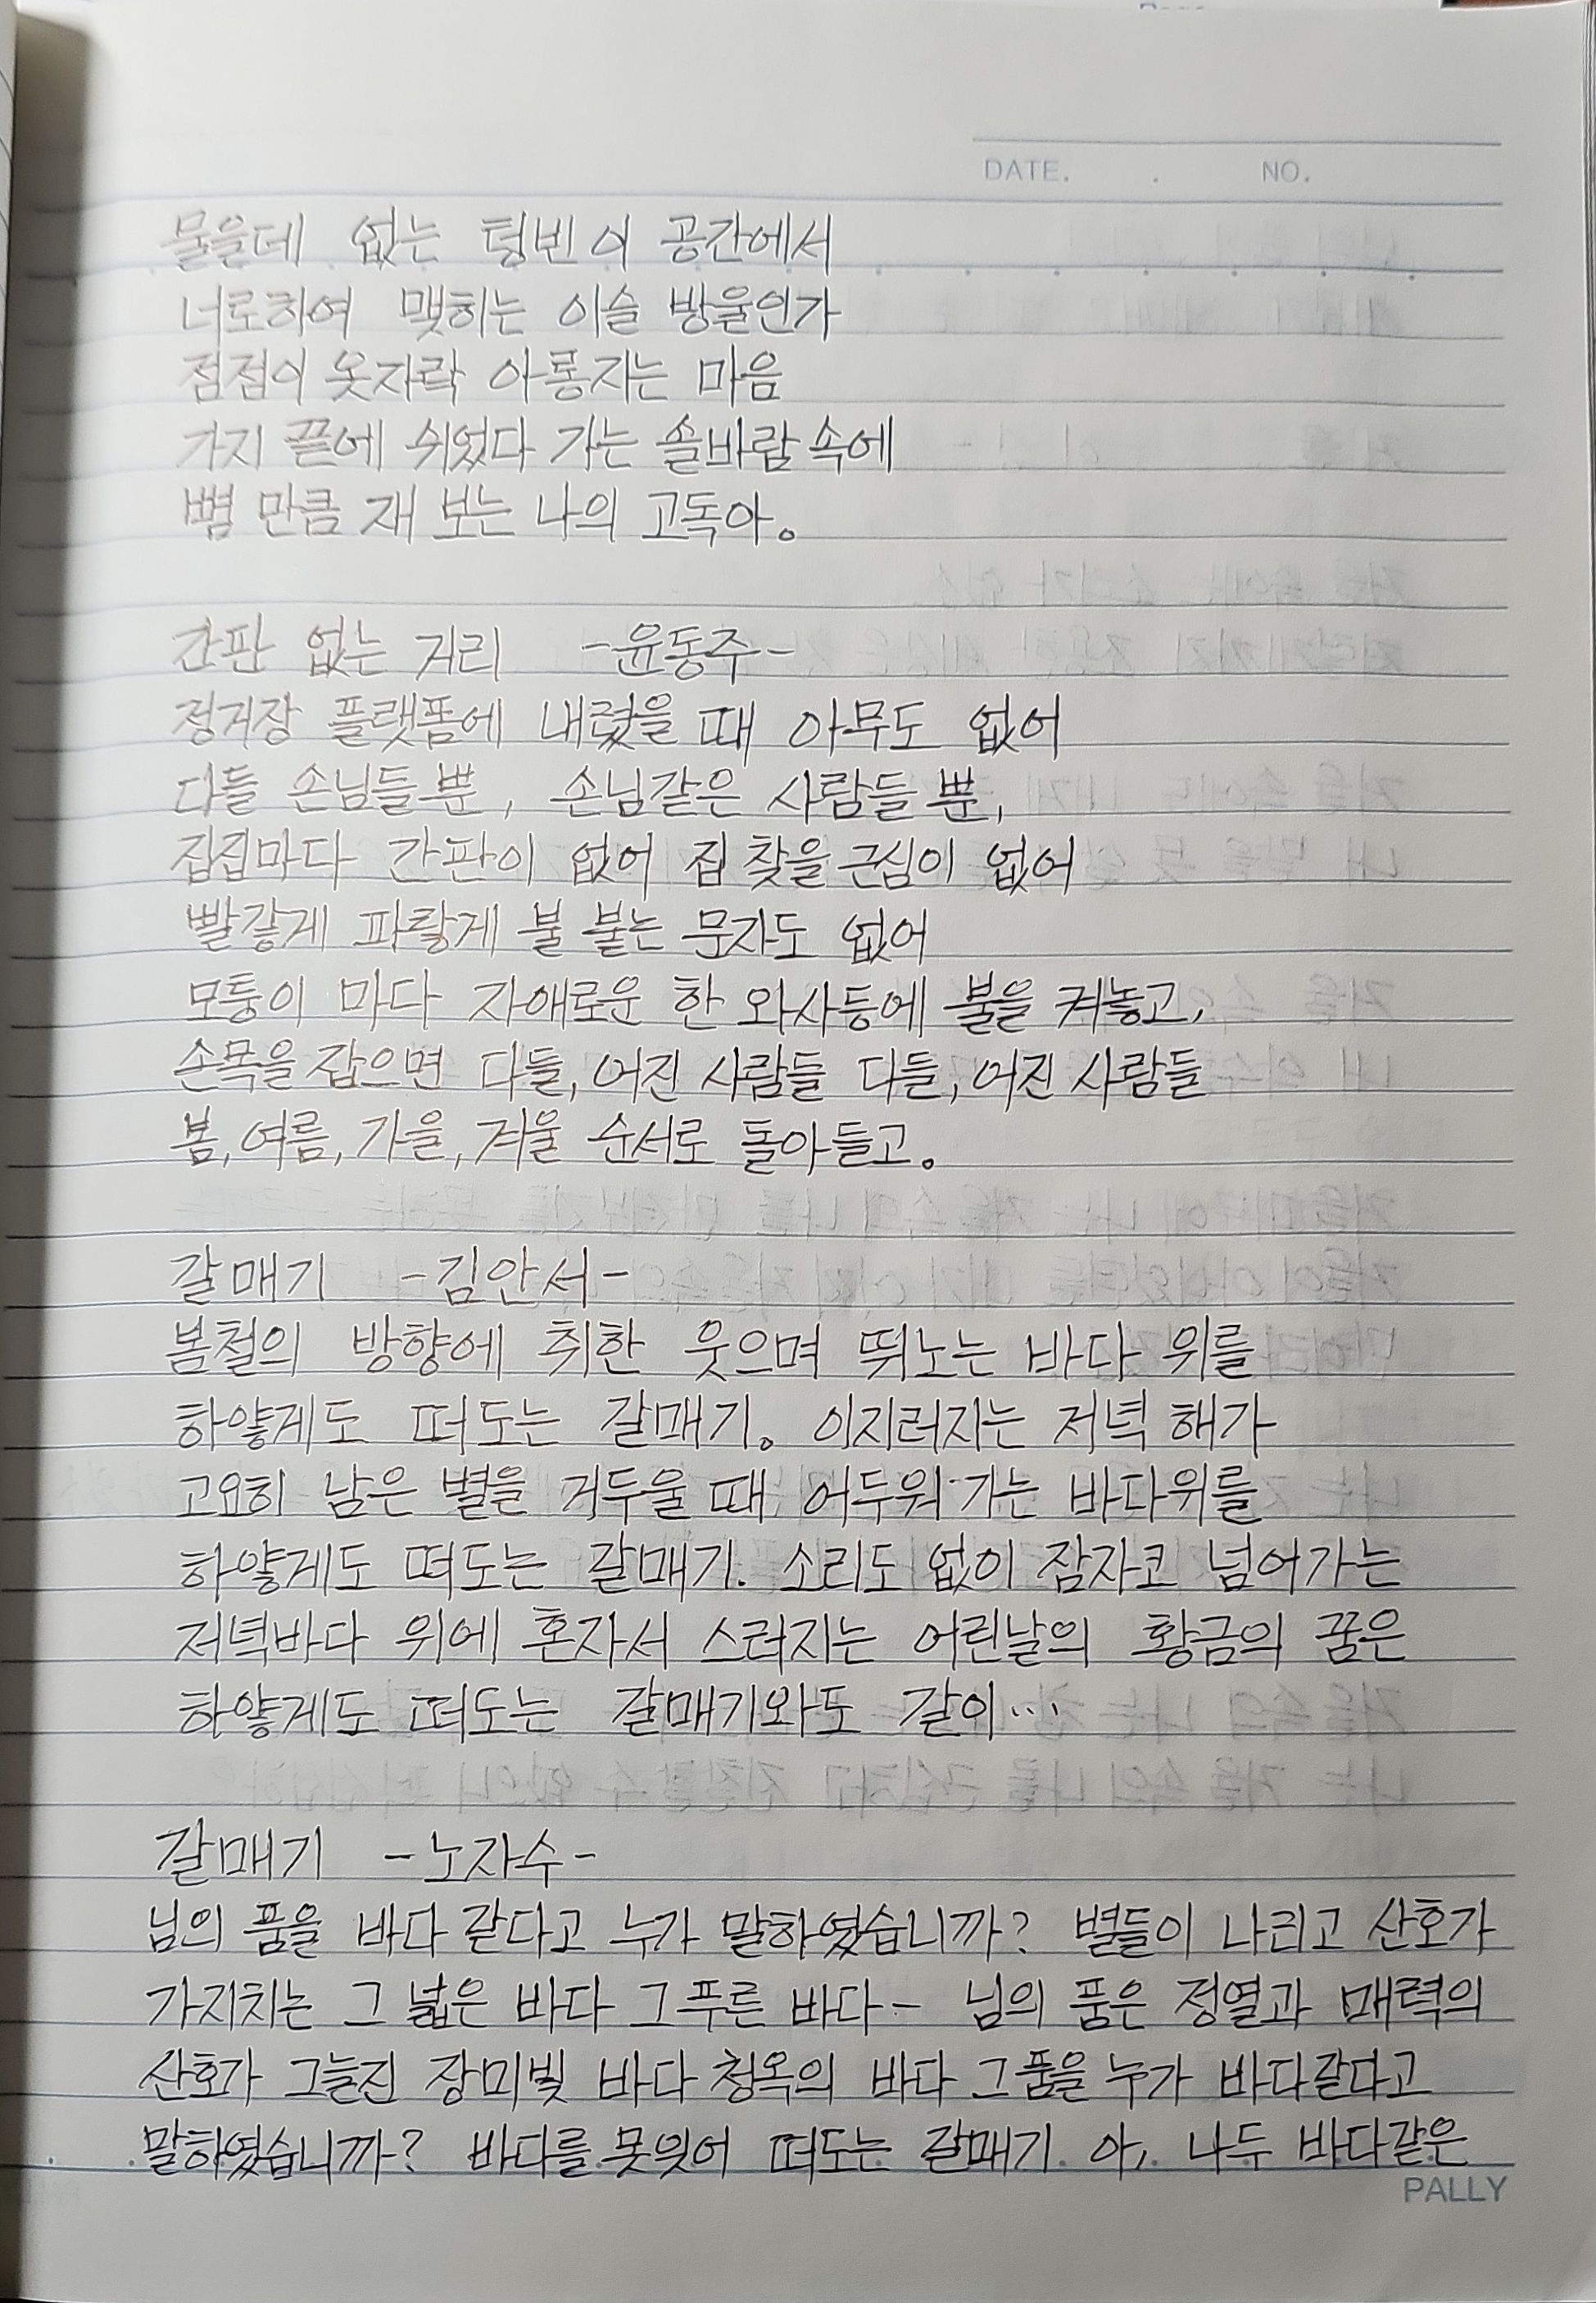 DATE. . NO.
물을데 없는 텅빈 이 공간에서
너로하여 맺히는 이슬 방울인가
점점이 옷자락 아롱지는 마음
가지 끝에 쉬었다 가는 솔바람 속에
뼘 만큼 재 보는 나의 고독아.
간판 없는 거리 -윤동주-
정거장 플랫폼에 내렸을 때 아무도 없어
다들 손님들뿐, 손님같은 사람들뿐,
집집마다 간판이 없어 집 찾을 근심이 없어
빨갛게 파랗게 불 붙는 문자도 없어
모퉁이 마다 자애로운 한 와사등에 불을 켜놓고,
손목을 잡으면 다들, 어진 사람들 다들, 어진 사람들
봄, 여름, 가을, 겨울 순서로 돌아들고.
갈매기 -김안서-
봄철의 방향에 취한 웃으며 뛰노는 바다 위를
하얗게도 떠도는 갈매기. 이지러지는 저녁 해가
고요히 남은 볕을 거두울 때 어두워 가는 바다위를
하얗게도 떠도는 갈매기. 소리도 없이 잠자코 넘어가는
저녁바다 위에 혼자서 스러지는 어린날의 황금의 꿈은
하얗게도 떠도는 갈매기와도 같이...
갈매기 -노자수-
님의 품을 바다 같다고 누가 말하였습니까? 별들이 나리고 산호가
가지치는 그 넓은 바다 그푸른 바다- 님의 품은 정열과 매력의
산호가 그늘진 장미빛 바다 청옥의 바다 그품을 누가 바다같다고
말하였습니까? 바다를 못잊어 떠도는 갈매기 아, 나두 바다같은
PALLY